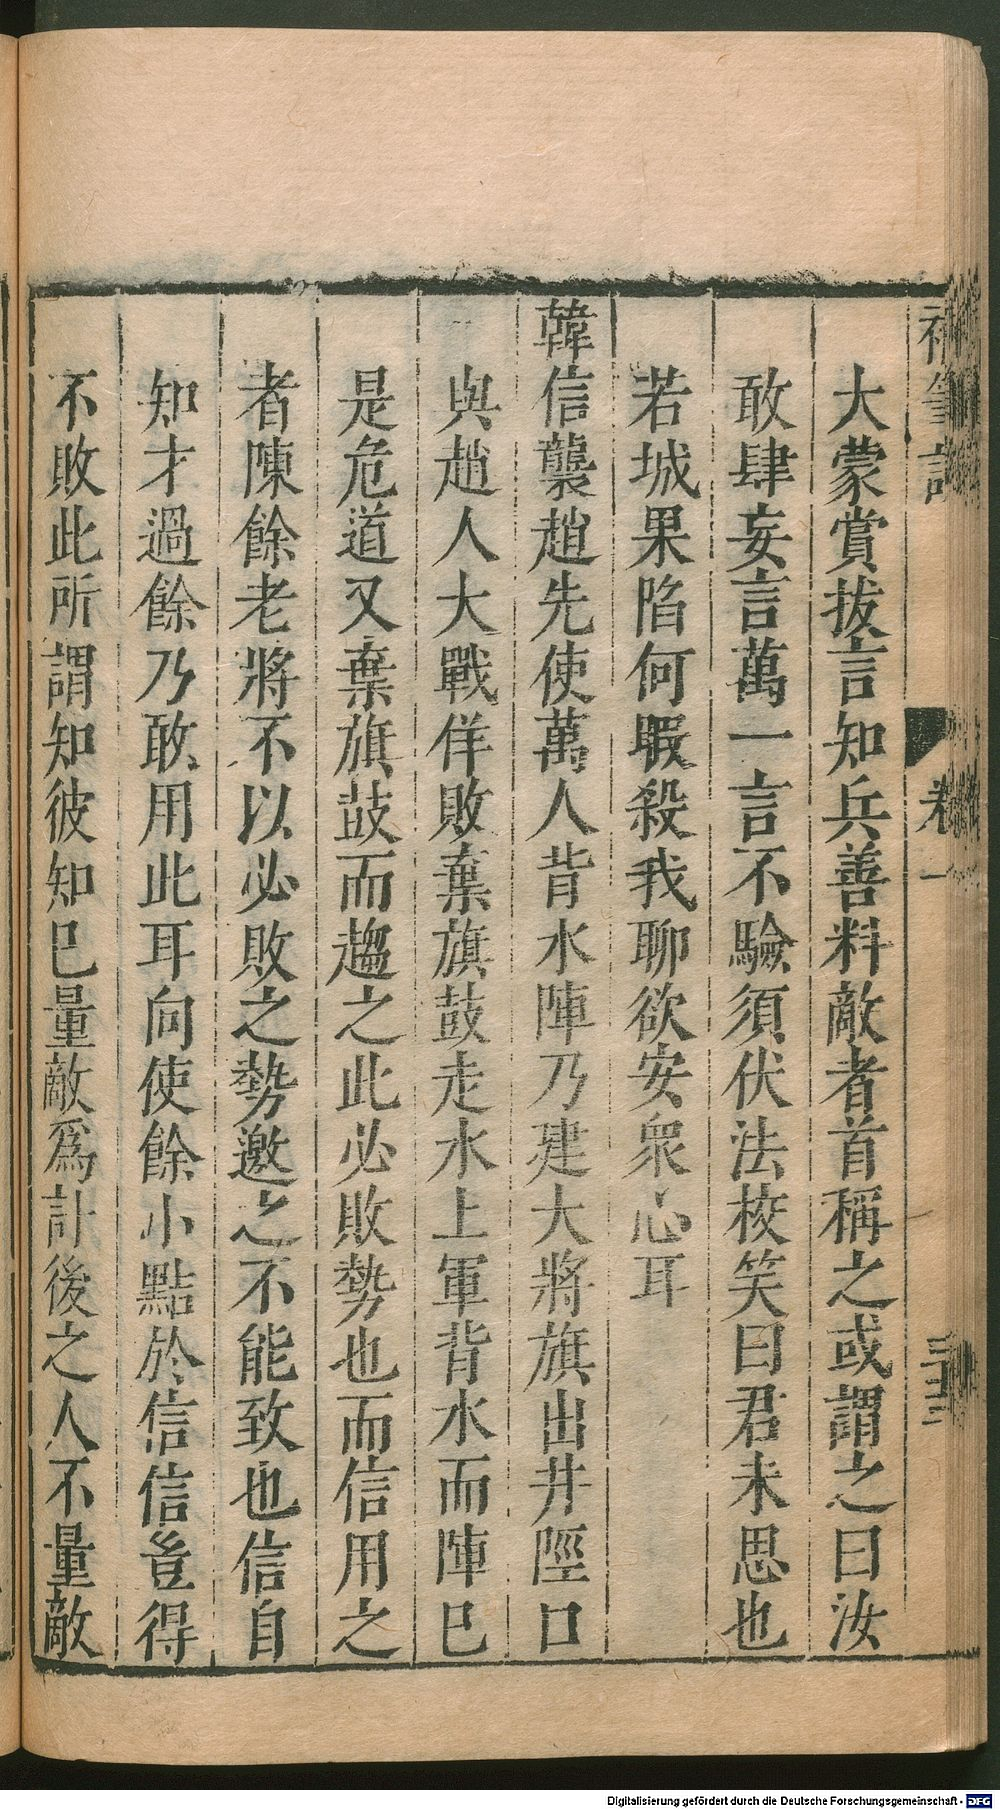 補筆談
卷一
三十三
大蒙賞拔言知兵善料敵者首稱之或謂之曰汝
敢肆妄言萬一言不驗須伏法校笑曰君未思也
若城果陷何暇殺我聊欲安衆心耳
韓信襲趙先使萬人背水陣乃建大將旗出井陘口
與趙人大戰佯敗棄旗鼓走水上軍背水而陣已
是危道又棄旗鼓而趨之此必敗勢也而信用之
者陳餘老將不以必敗之勢邀之不能致也信自
知才過餘乃敢用此耳向使餘小黠於信信豈得
不敗此所謂知彼知已量敵爲計後之人不量敵
Digitalisierung gefördert durch die Deutsche Forschungsgemeinschaft - DFG